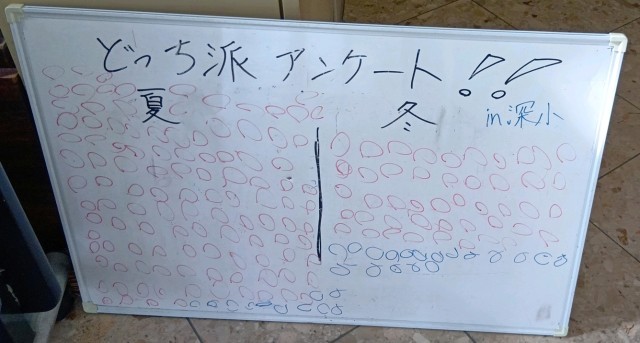 どっち派 アンケート!!
夏
冬
in深小